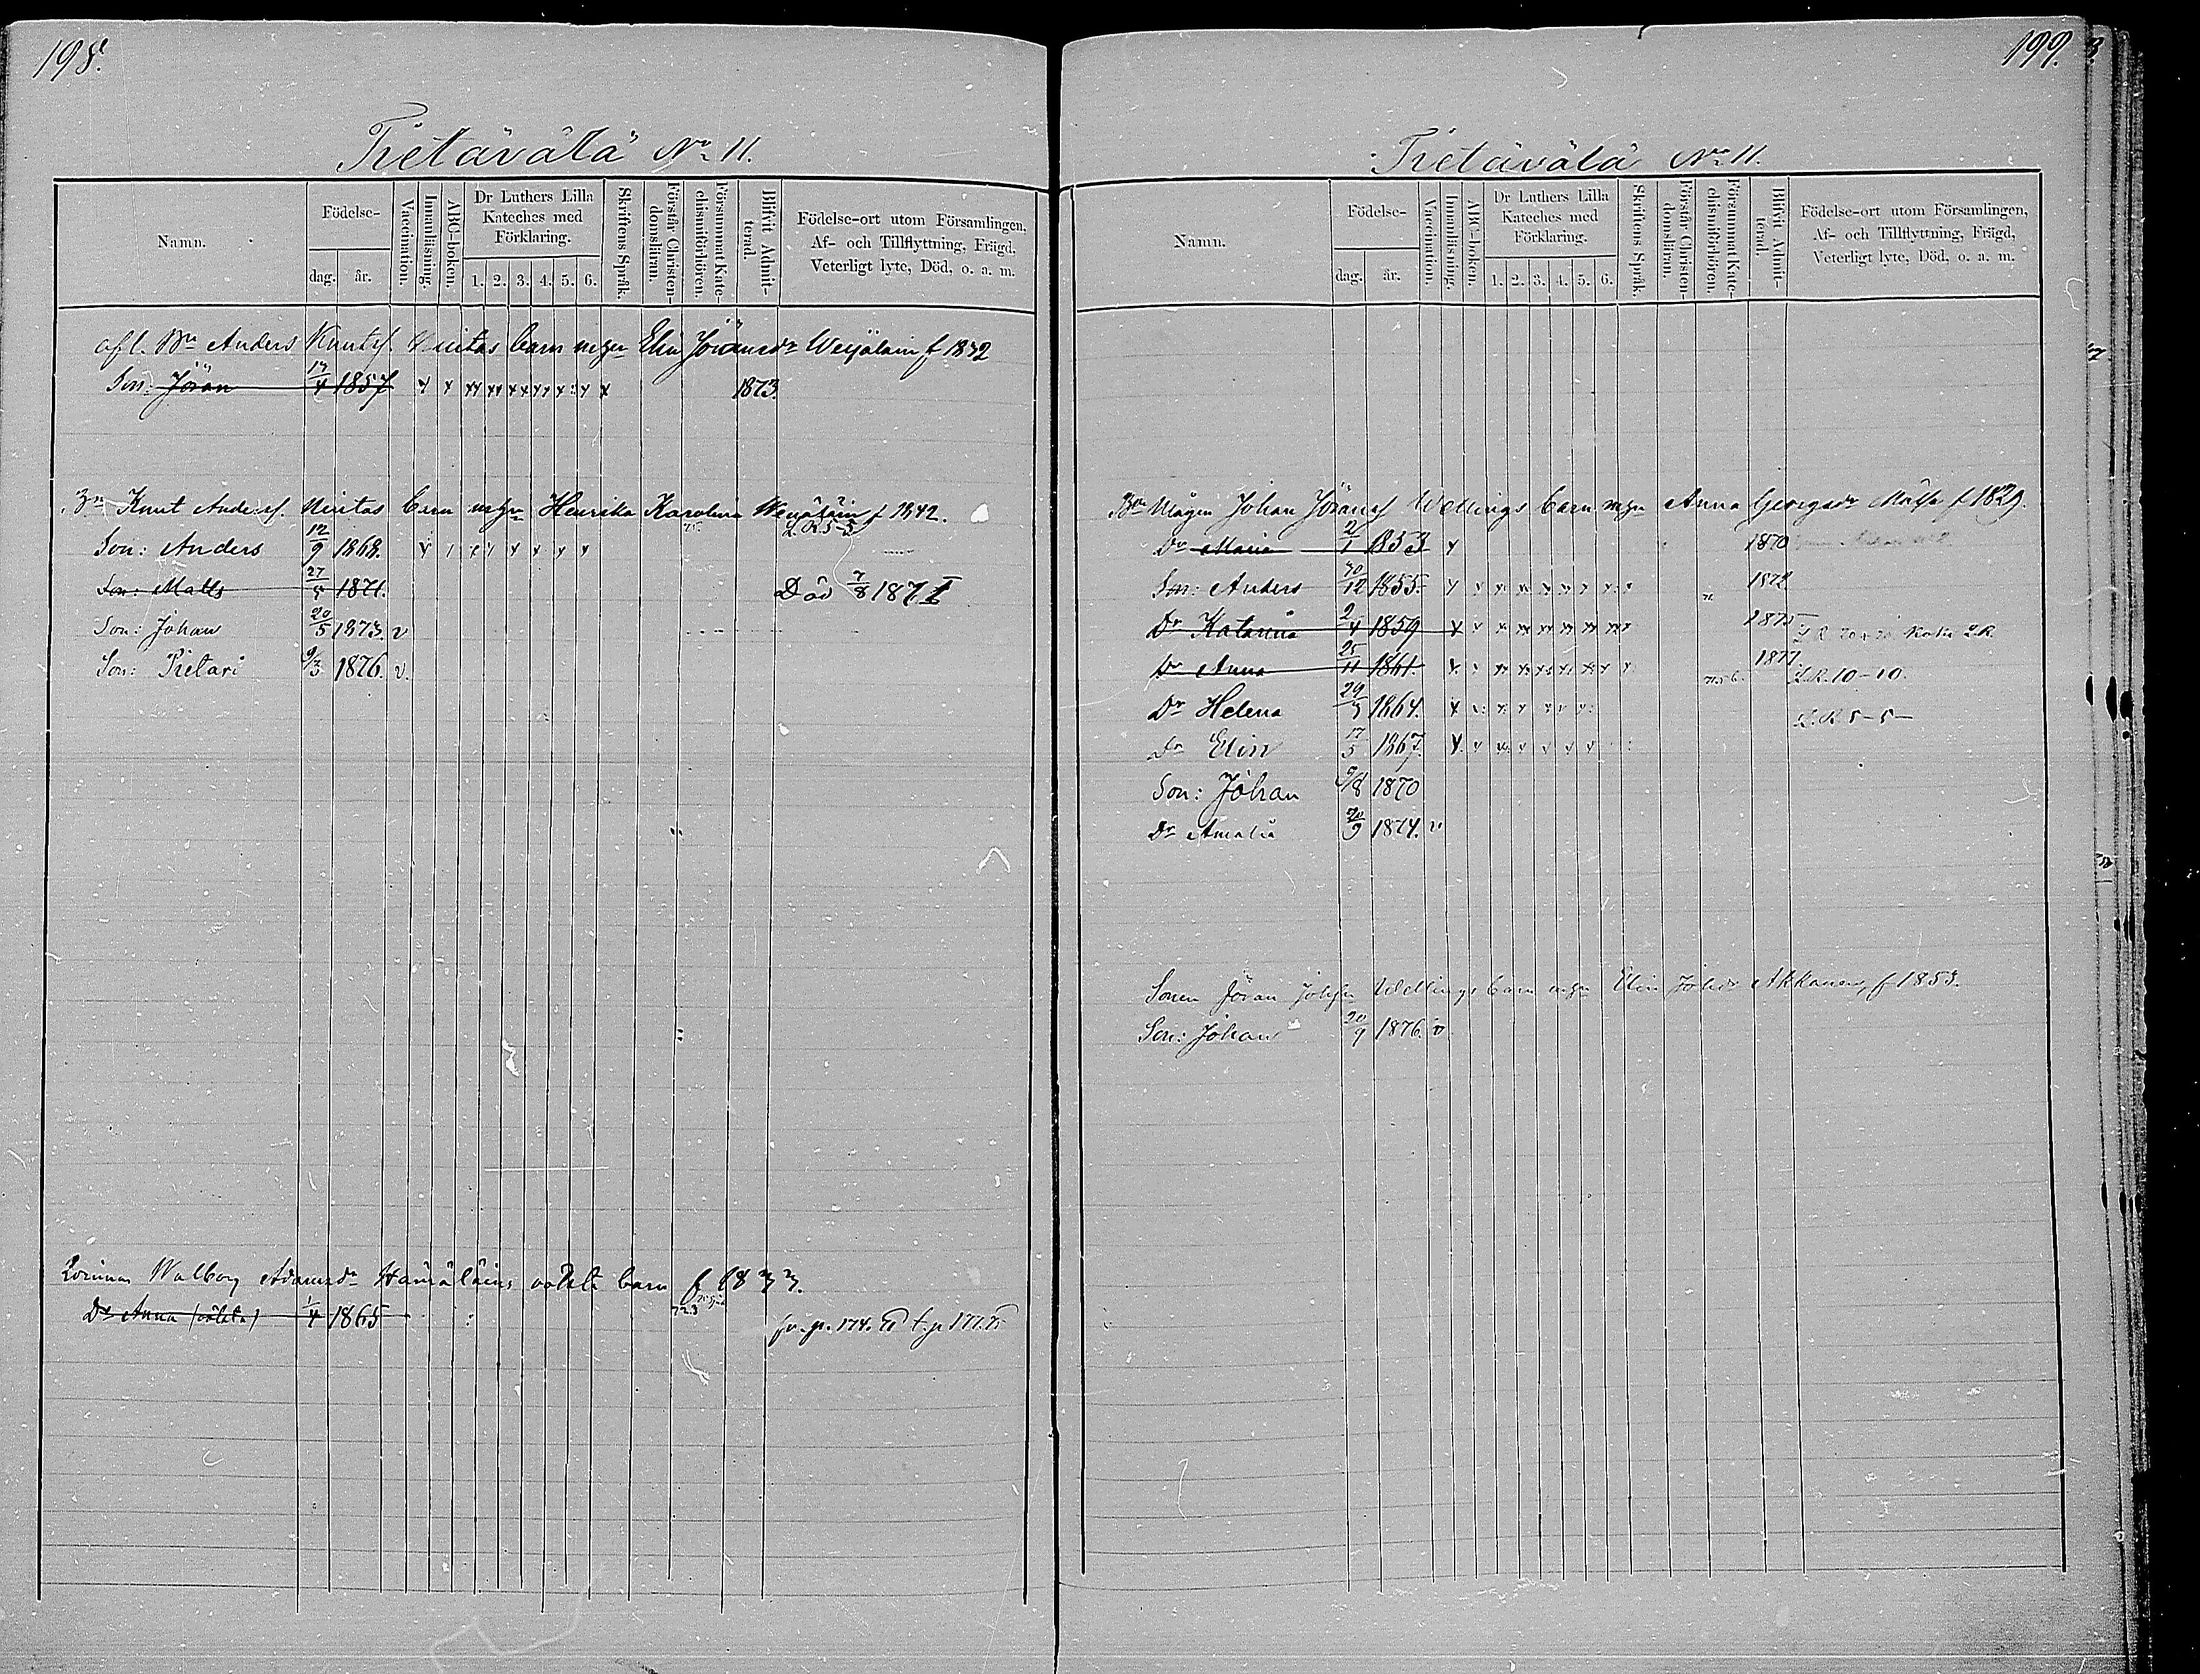 198.
Tietävälä No 11.
Namn.
Födelse-
dag. år.
Vaccination.
Innanläsning.
ABC-boken.
Dr Luthers Lilla Kateches med Förklaring.
1. 2. 3. 4. 5. 6.
Skriftens Språk.
Förstår Christendomsläran.
Försummat Katechismiförhören.
Blifvit Admitterad.
Födelse-ort utom Församlingen, Af- och Tillflyttning, Frägd, Veterligt lyte, Död, o. a. m.
afl. Bn Anders Knutsf. barn mgn Elin Jöransdr f 1832
Son: Jöran 17/4 1857 1873.
Bn Knut Andersf. barn mgn Henrika Karolina f 1842.
L.R. 5-5
Son: Anders 12/9 1868.
Son: Matts 27/5 1871. Död 7/8 1871
Son: Johan 20/5 1873. v
Son: Pietari 9/3 1876. v.
Walborg Adamsdr Hämäläins oäkta barn f 1833.
Dr Anna (oäkta) 1/4 1865 fr. p. 174. t. p 177.
199.
Tietävälä No 11.
Namn.
Födelse-
dag. år.
Vaccination.
Innanläsning.
ABC-boken.
Dr Luthers Lilla Kateches med Förklaring.
1. 2. 3. 4. 5. 6.
Skriftens Språk.
Förstår Christendomsläran.
Försummat Katechismiförhören.
Blifvit Admitterad.
Födelse-ort utom Församlingen, Af- och Tillflyttning, Frägd, Veterligt lyte, Död, o. a. m.
Bn Mågen Johan Jöransf Wellings barn mgn Anna Georgsdr f 1829.
Dr Maria 2/1 1853 1870
Son: Anders 30/12 1855. 1872
Dr Katarina 2/4 1859 1875
Dr Anna 25/11 1861. 1877 L.R. 10-10.
Dr Helena 29/3 1864. L.R. 5-5-
Dr Elin 17/5 1867.
Son: Johan 9/8 1870
Dr Amalia 20/9 1874. v
Sonen Jöran Wellings barn mgn Elin Akkanen, f 1853.
Son: Johan 20/9 1876. v.